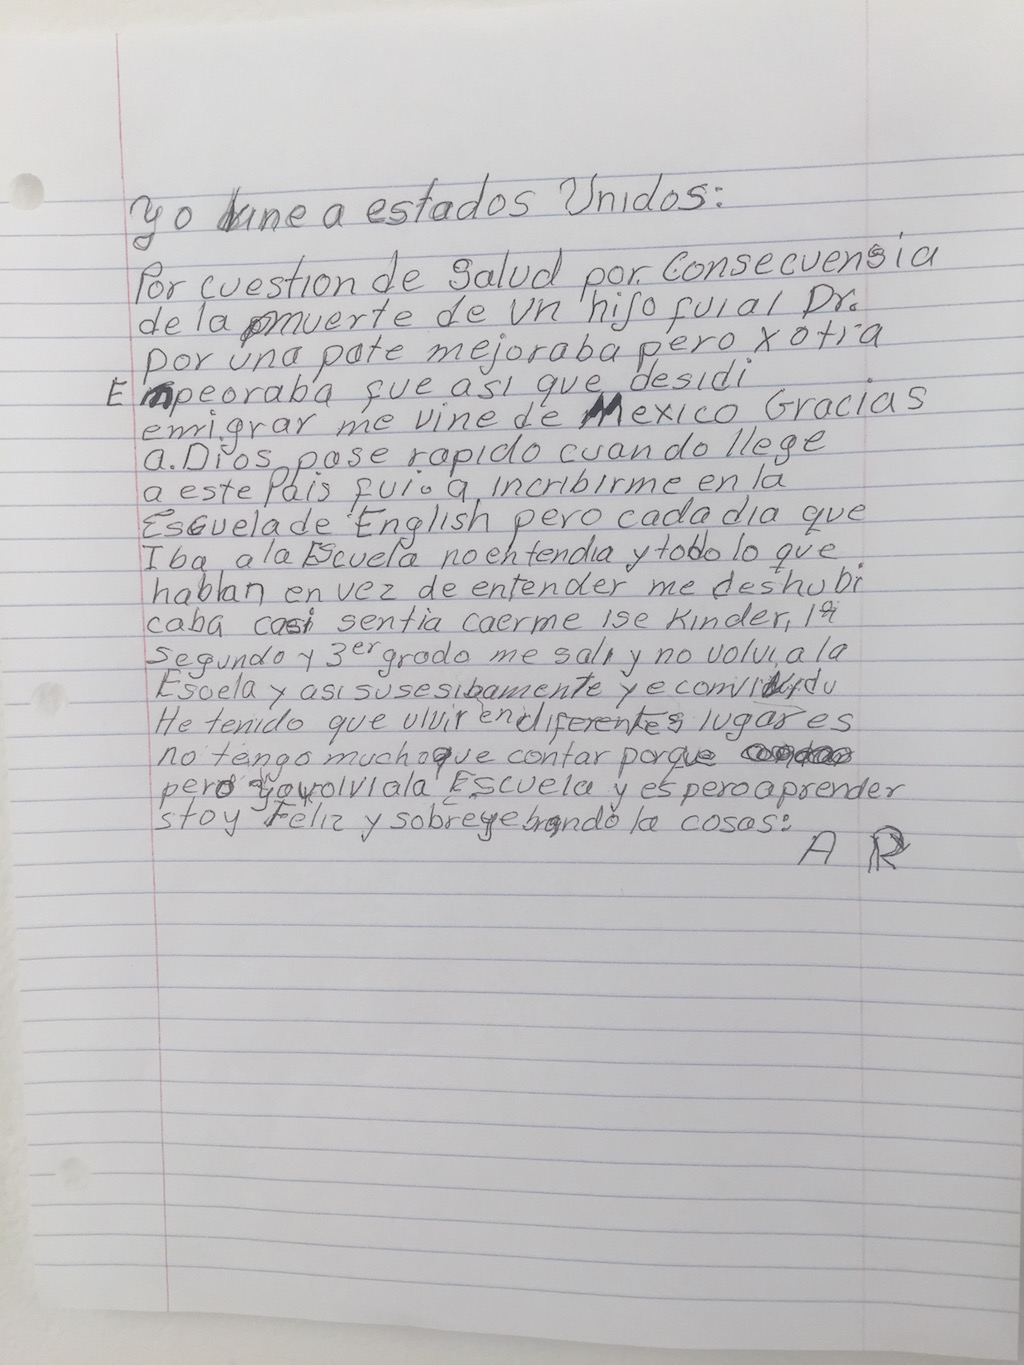 yo vine a estados Unidos:
Por cuestion de Salud por. Consecuensia
de la muerte de un hijo fui al Dr.
por una pate mejoraba pero x otra
Empeoraba fue asi que desidi
emigrar me vine de Mexico Gracias
a. Dios pase rapido cuando llege
a este Pais fui a incribirme en la
Escuela de English pero cada dia que
Iba a la Escuela no entendia y todo lo que
hablan en vez de entender me deshubi
caba casi sentia caerme ise Kinder, 1º
Segundo y 3er grado me sali y no volvi a la
Escela y asi susesibamente y e
He tenido que vivir en diferentes lugares
no tengo mucho que contar porque
pero ya volvi a la Escuela y espero aprender
stoy Feliz y la cosas:
A R